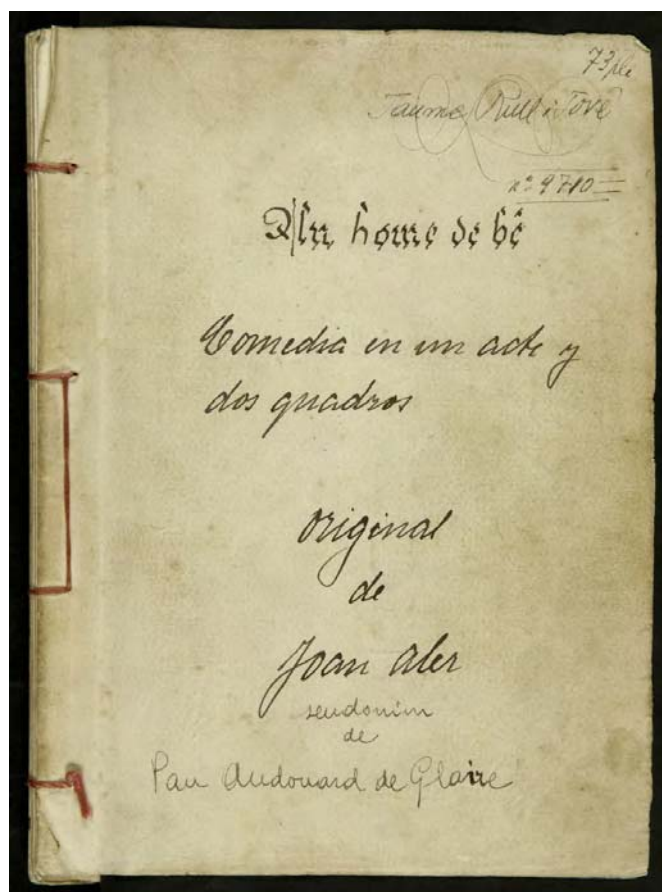 73 ple
Jaume Rull i Jové
nº 9710
Un home de bé
Comedia en un acte y
dos quadros
original
de
Joan Aler
seudonim
de
Pau Audouard de Glaire